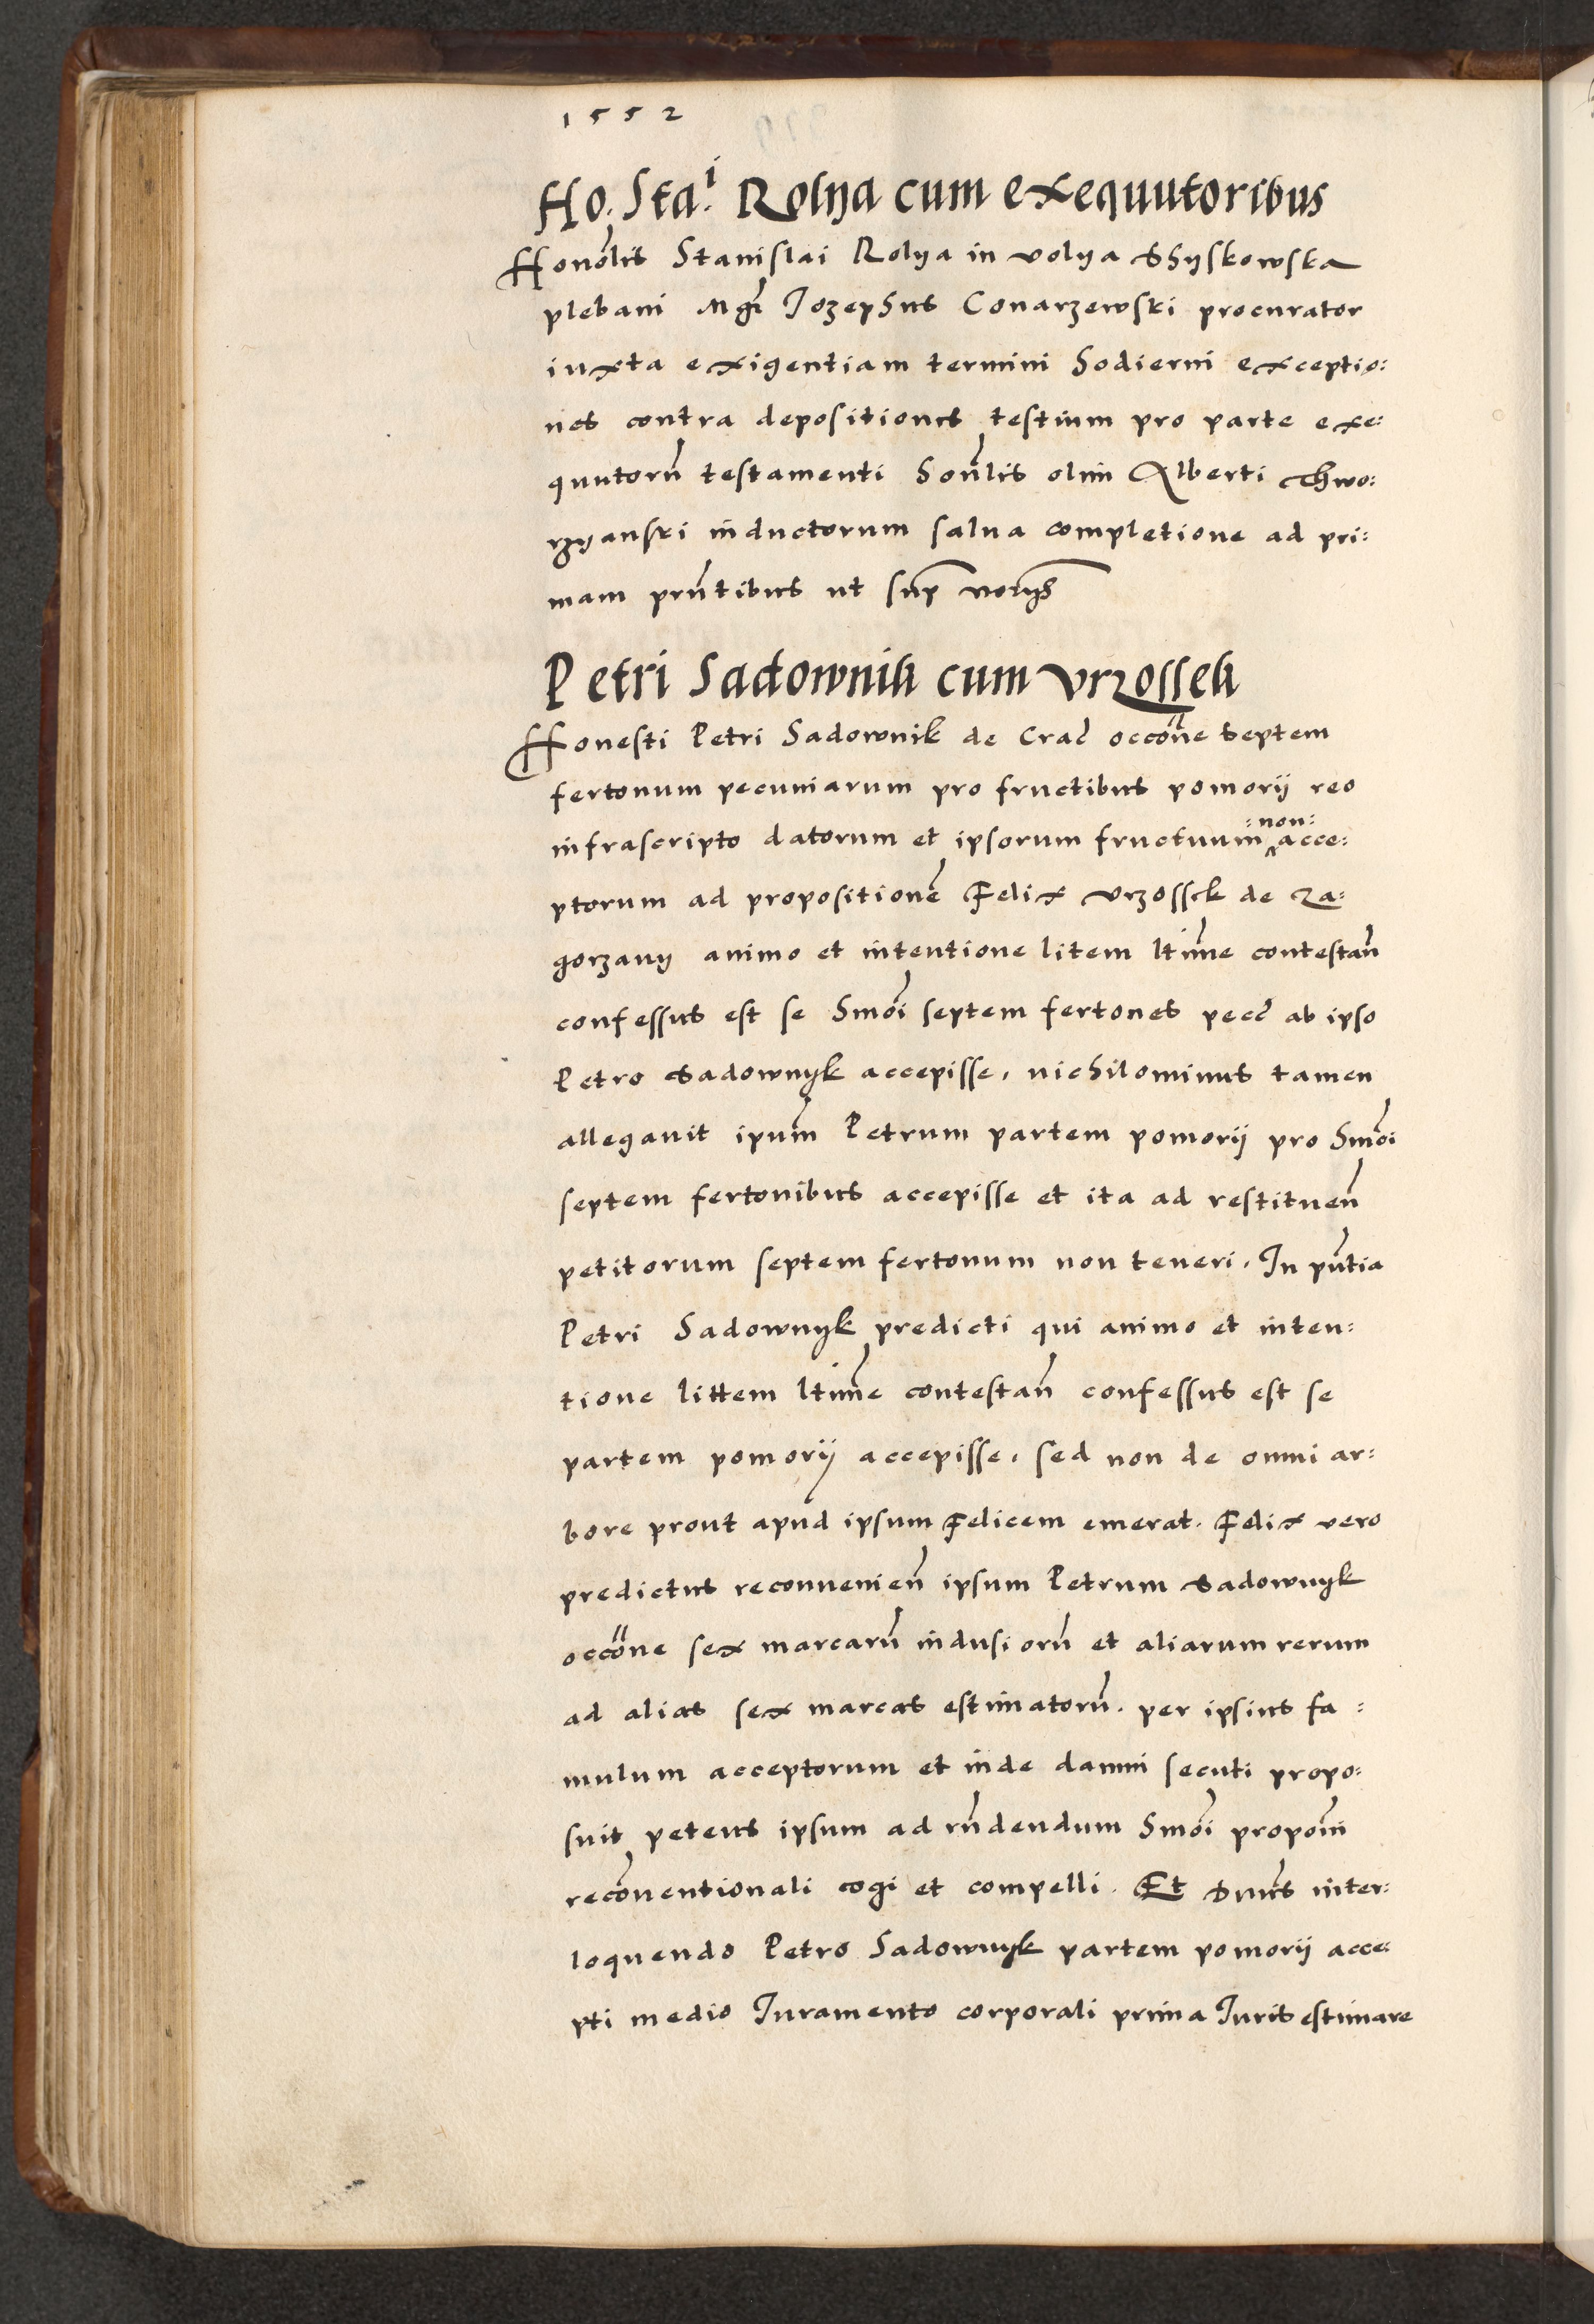 1552
Ho. Sta.i Rolya cum exequutoribus
Honorlis Stanislai Rolya in volya Shyskowska
plebani Mgr Jozephus Conarzewski procurator
iuxta exigentiam termini hodierni exceptio:
nes contra depositiones testium pro parte exe:
quutorum̄ testamenti honorlis olim Alberti Thwo:
rzyanski inductorum salua completione ad pri:
mam prntibus ut supr
Petri Sadownik cum Vrzossek
Honesti Petri Sadownik de Crac occone septem
fertonum pecuniarum pro fructibus pomorij reo
infrascripto datorum et ipsorum fructuum :non: acce:
ptorum ad propositionē Felix Vrzossek de Za:
gorzany animo et intentione litem ltime contestan̄
confessus est se hmoi septem fertones pecc ab ipso
Petro Sadownyk accepisse, nichilominus tamen
allegauit ipum Petrum partem pomorij pro hmoi
septem fertonibus accepisse et ita ad restituen̄
petitorum septem fertonum non teneri. In pntia
Petri Sadownyk predicti qui animo et inten:
tione littem ltime contestan̄ confessus est se
partem pomorij accepisse, sed non de omni ar:
bore prout apud ipsum Felicem emerat. Felix vero
predictus reconuenien̄ ipsum Petrum Sadownyk
occone sex marcarū indusiorū et aliarum rerum
ad alias sex marcas estimatorū. per ipsius fa:
mulum acceptorum et inde damni secuti propo:
suit petens ipsum ad rn̄dendum hmoi propoīni
recōnentionali cogi et compelli. Et Dnus inter:
loquendo Petro Sadownyk partem pomorij acce:
pti medio Juramento corporali prima Juris estimare